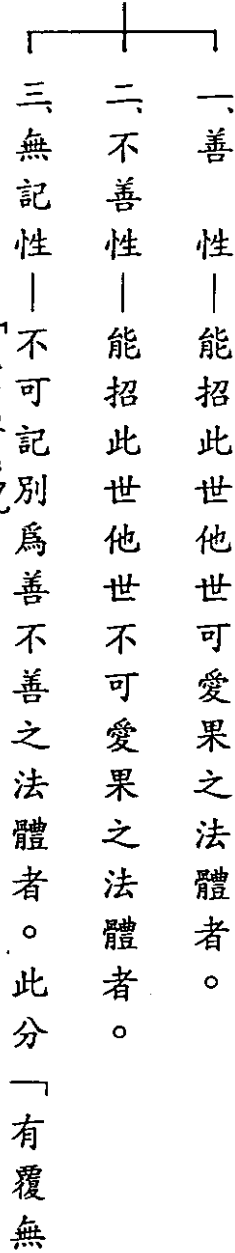 一、善　性—能招此世他世可愛果之法體者。
二、不善性—能招此世他世不可愛果之法體者。
三、無記性—不可記別爲善不善之法體者。此分「有覆無